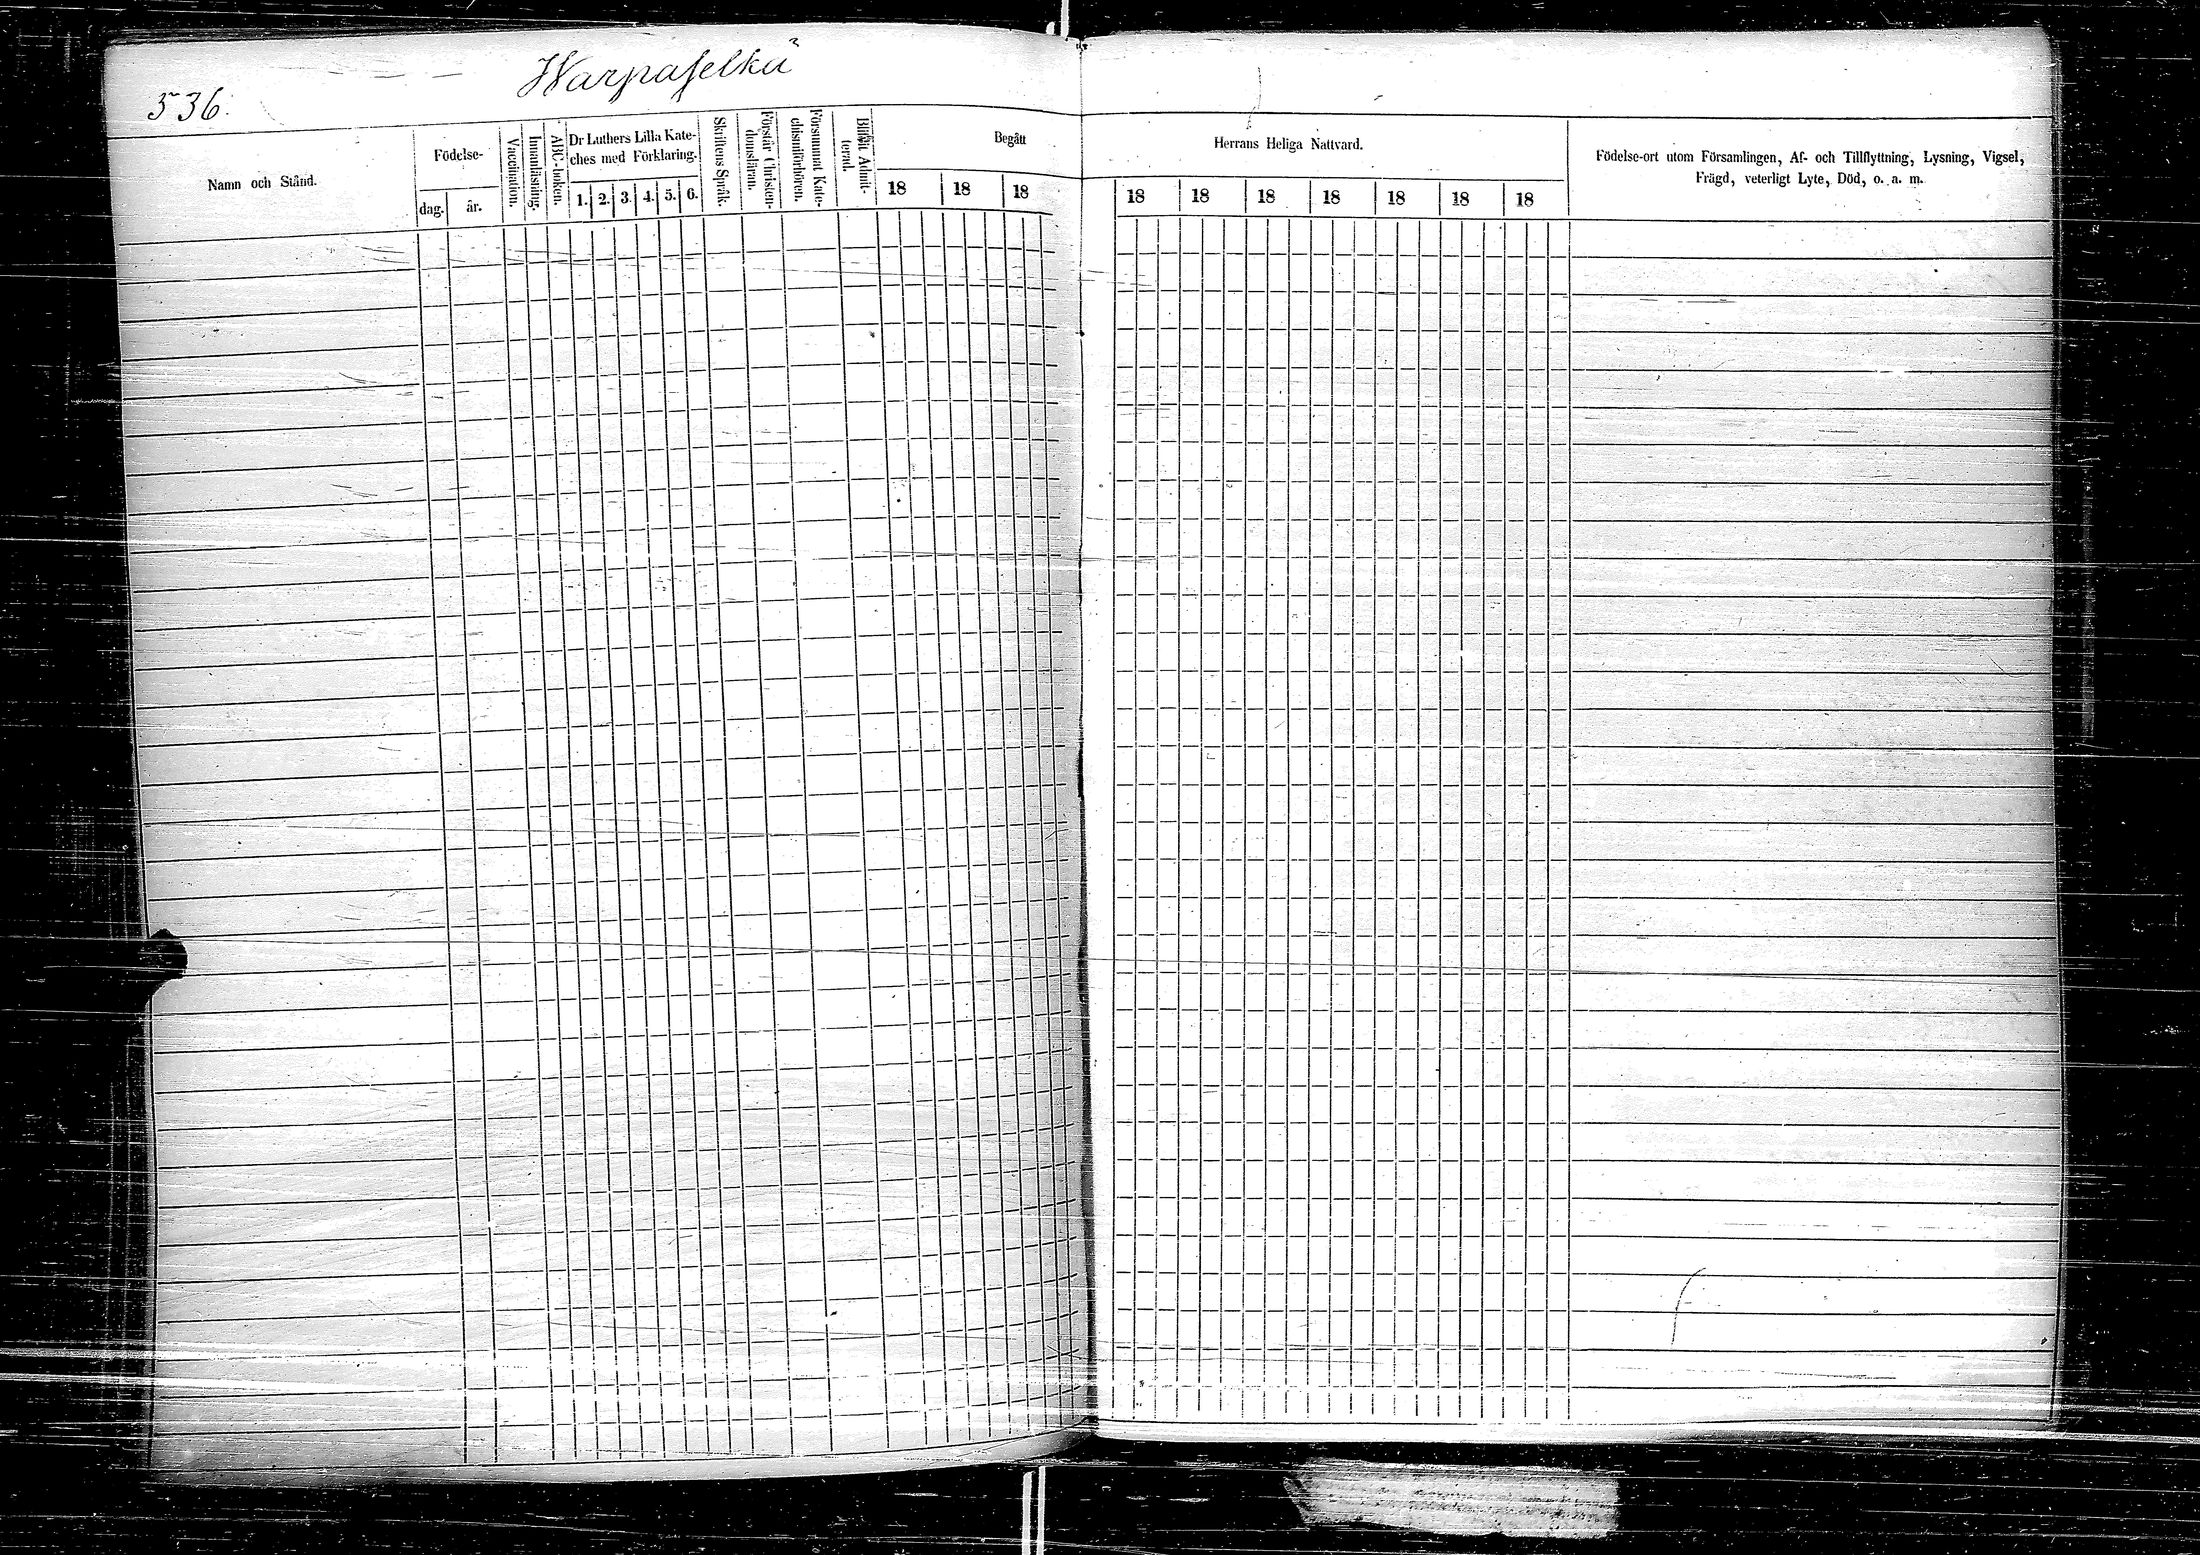 Warpaselkä
536.
Namn och Stånd.
Födelse-
dag.
år.
Vaccination.
Innanläsning.
ABC-boken.
Dr Luthers Lilla Kate-
ches med Förklaring.
1. 2. 3. 4. 5. 6.
Skriftens Språk.
Förstår Christen-
domsläran.
Försummat Kate-
chismiförhören.
Blifvit Admit-
terad.
Begått
18 18 18
Herrans Heliga Nattvard.
18 18 18 18 18 18 18
Födelse-ort utom Församlingen, Af- och Tillflyttning, Lysning, Vigsel,
Frägd, veterligt Lyte, Död, o. a. m.